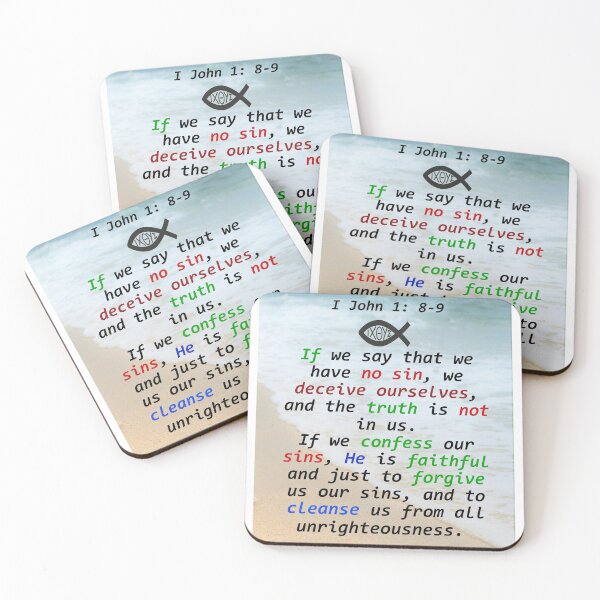 I John 1: 8-9
ΙΧΘΥΣ
If we say that we
have no sin, we
deceive ourselves,
and the truth is no
our
I John 1: 8-9
ΙΧΘΥΣ
If we say that we
have no sin, we
deceive ourselves,
and the truth is not
in us.
If we confess our
sins, He is faithful
and just to
to
all
I John 1: 8-9
ΙΧΘΥΣ
If we say that we
have no sin, we
deceive ourselves,
and the truth is not
in us.
If we confess
sins, He is fa
and just to f
us our sins,
cleanse us
unrighteo
I John 1: 8-9
ΙΧΘΥΣ
If we say that we
have no sin, we
deceive ourselves,
and the truth is not
in us.
If we confess our
sins, He is faithful
and just to forgive
us our sins, and to
cleanse us from all
unrighteousness.